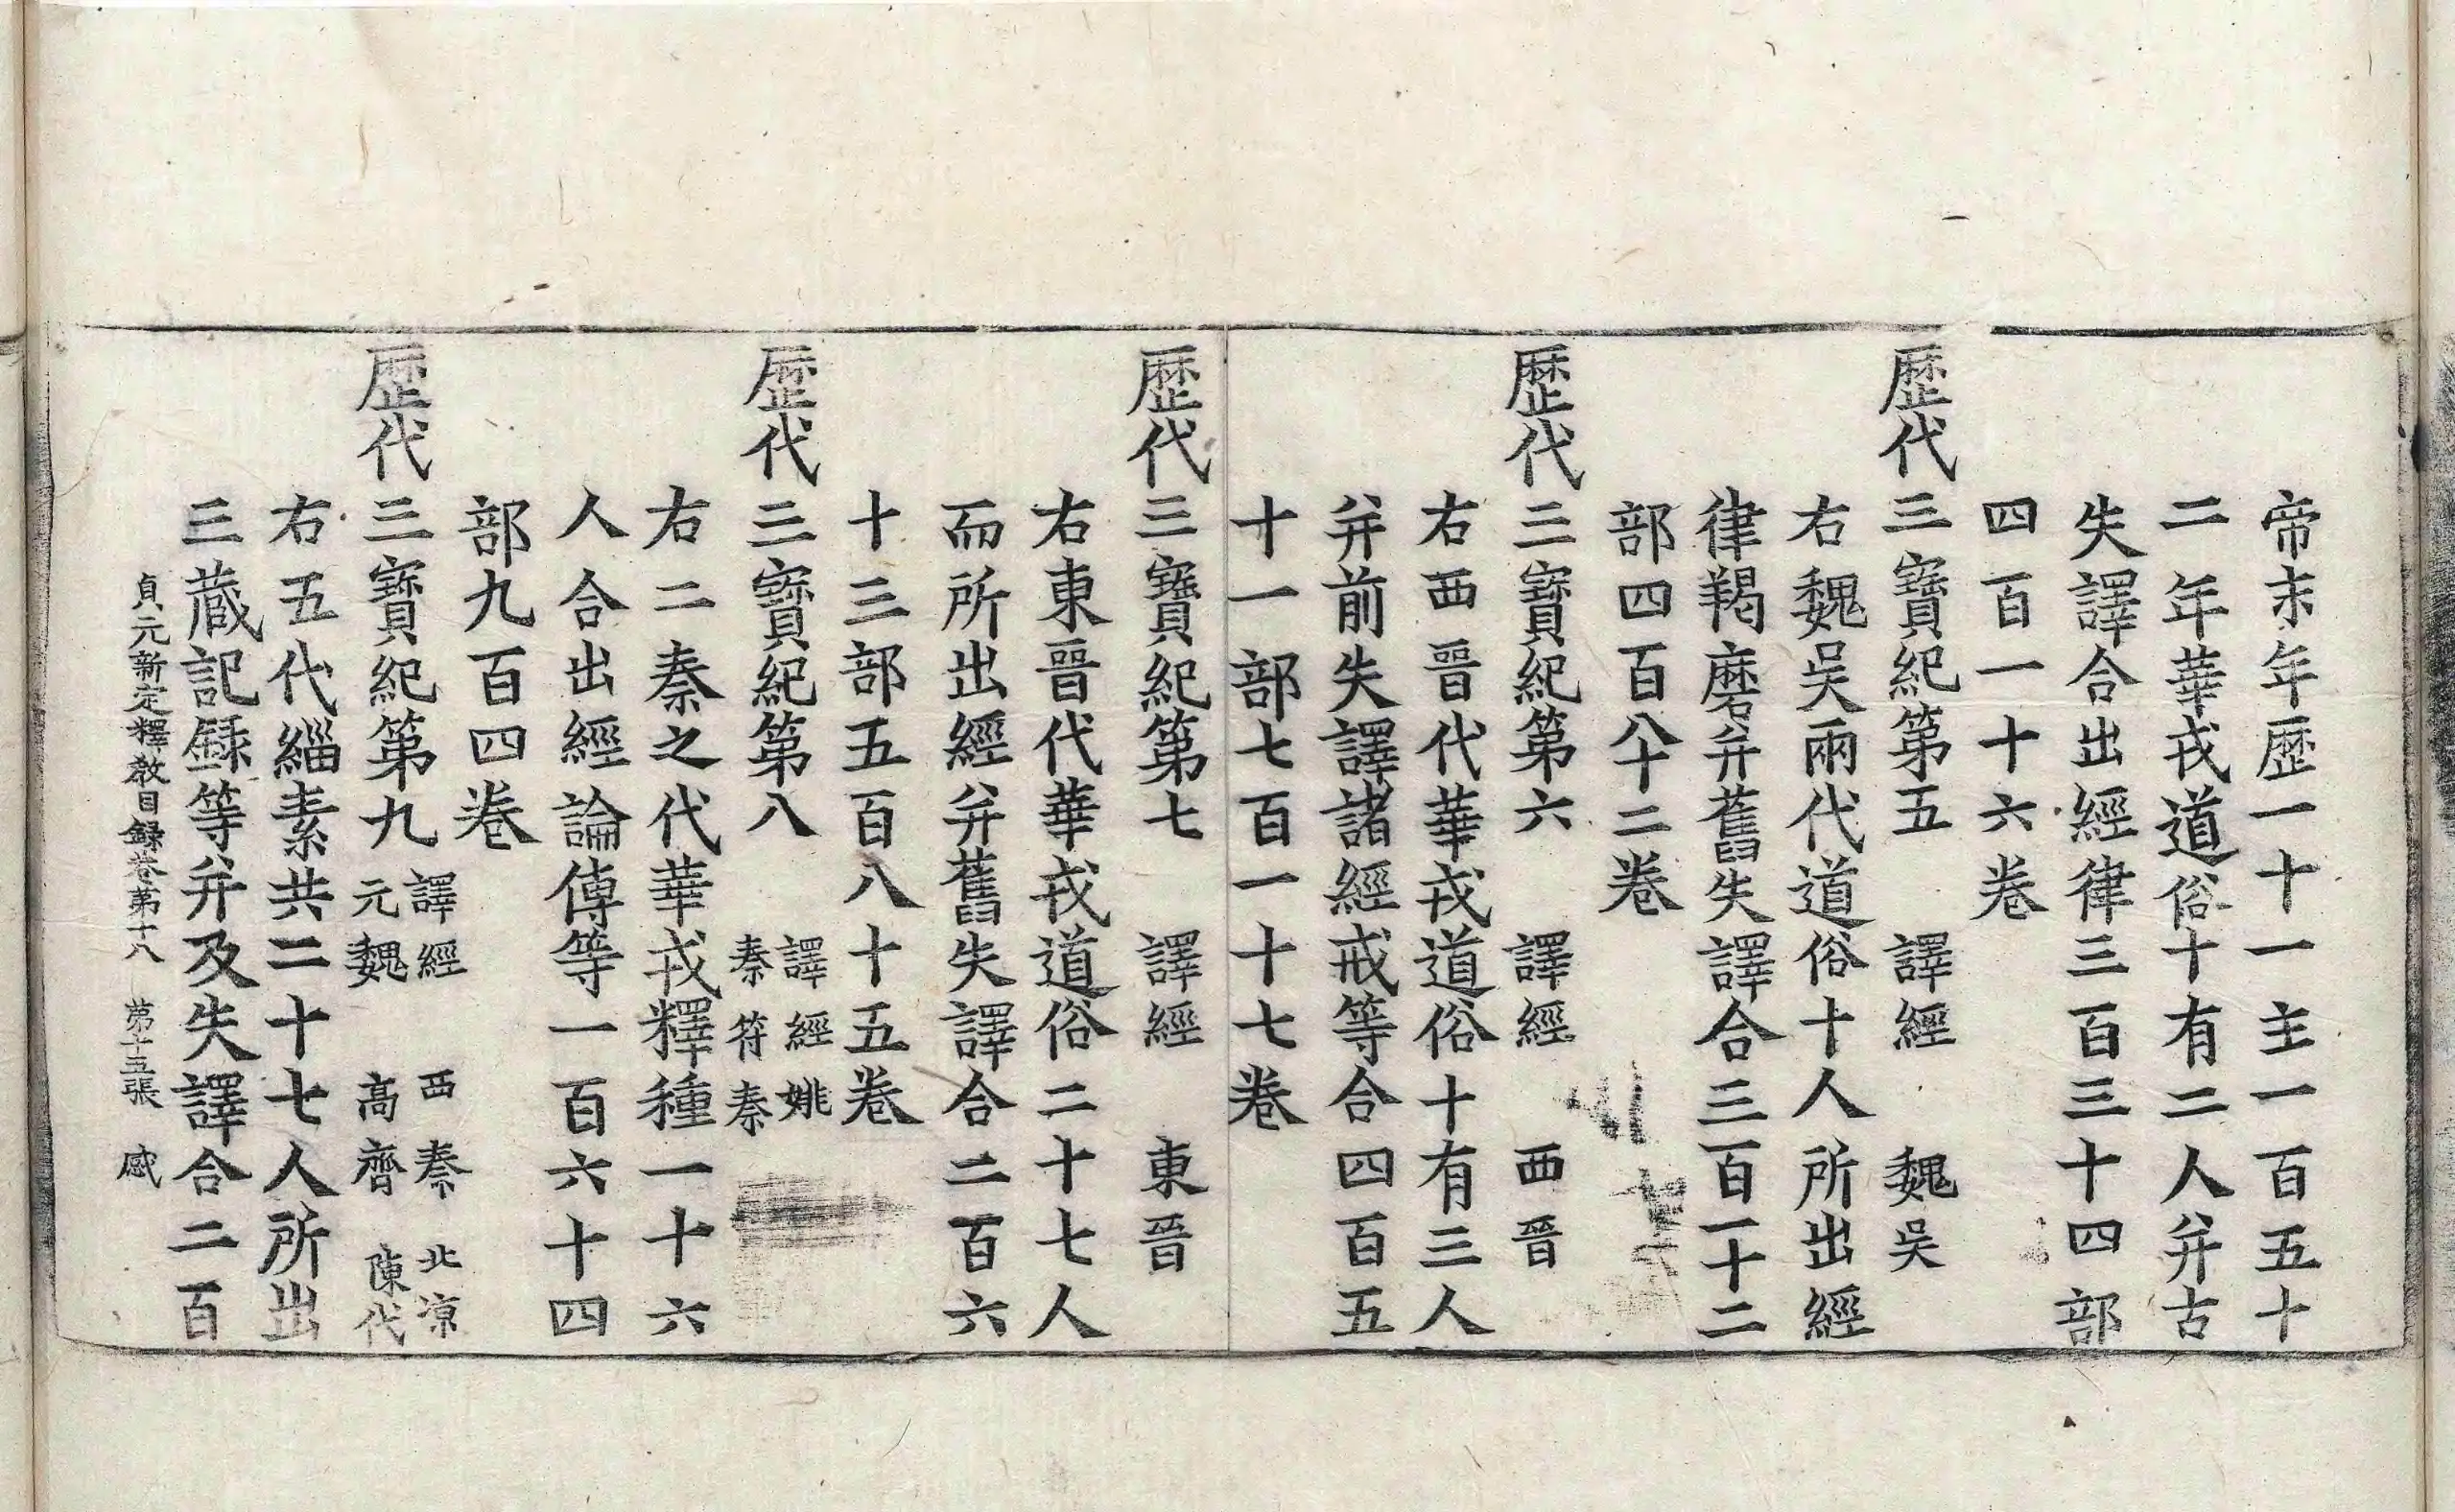 帝末年歷一十一主一百五十
二年華戎道俗十有二人并古
失譯合出經律三百三十四部
四百一十六卷
歷代三寶紀第五　譯經　魏吳
右魏吳兩代道俗十人所出經
律羯磨并舊失譯合三百一十二
部四百八十二卷
歷代三寶紀第六　譯經　西晉
右西晉代華戎道俗十有三人
并前失譯諸經戒等合四百五
十一部七百一十七卷
歷代三寶紀第七　譯經　東晉
右東晉代華戎道俗二十七人
而所出經并舊失譯合二百六
十三部五百八十五卷
歷代三寶紀第八　譯經姚
秦符秦
右二秦之代華戎釋種一十六
人合出經論傳等一百六十四
部九百四卷
歷代三寶紀第九　譯經　西秦　北涼
元魏　高齊　陳代
右五代緇素共二十七人所出
三藏記録等并及失譯合二百
貞元新定釋教目録卷第十八　第十五張　感